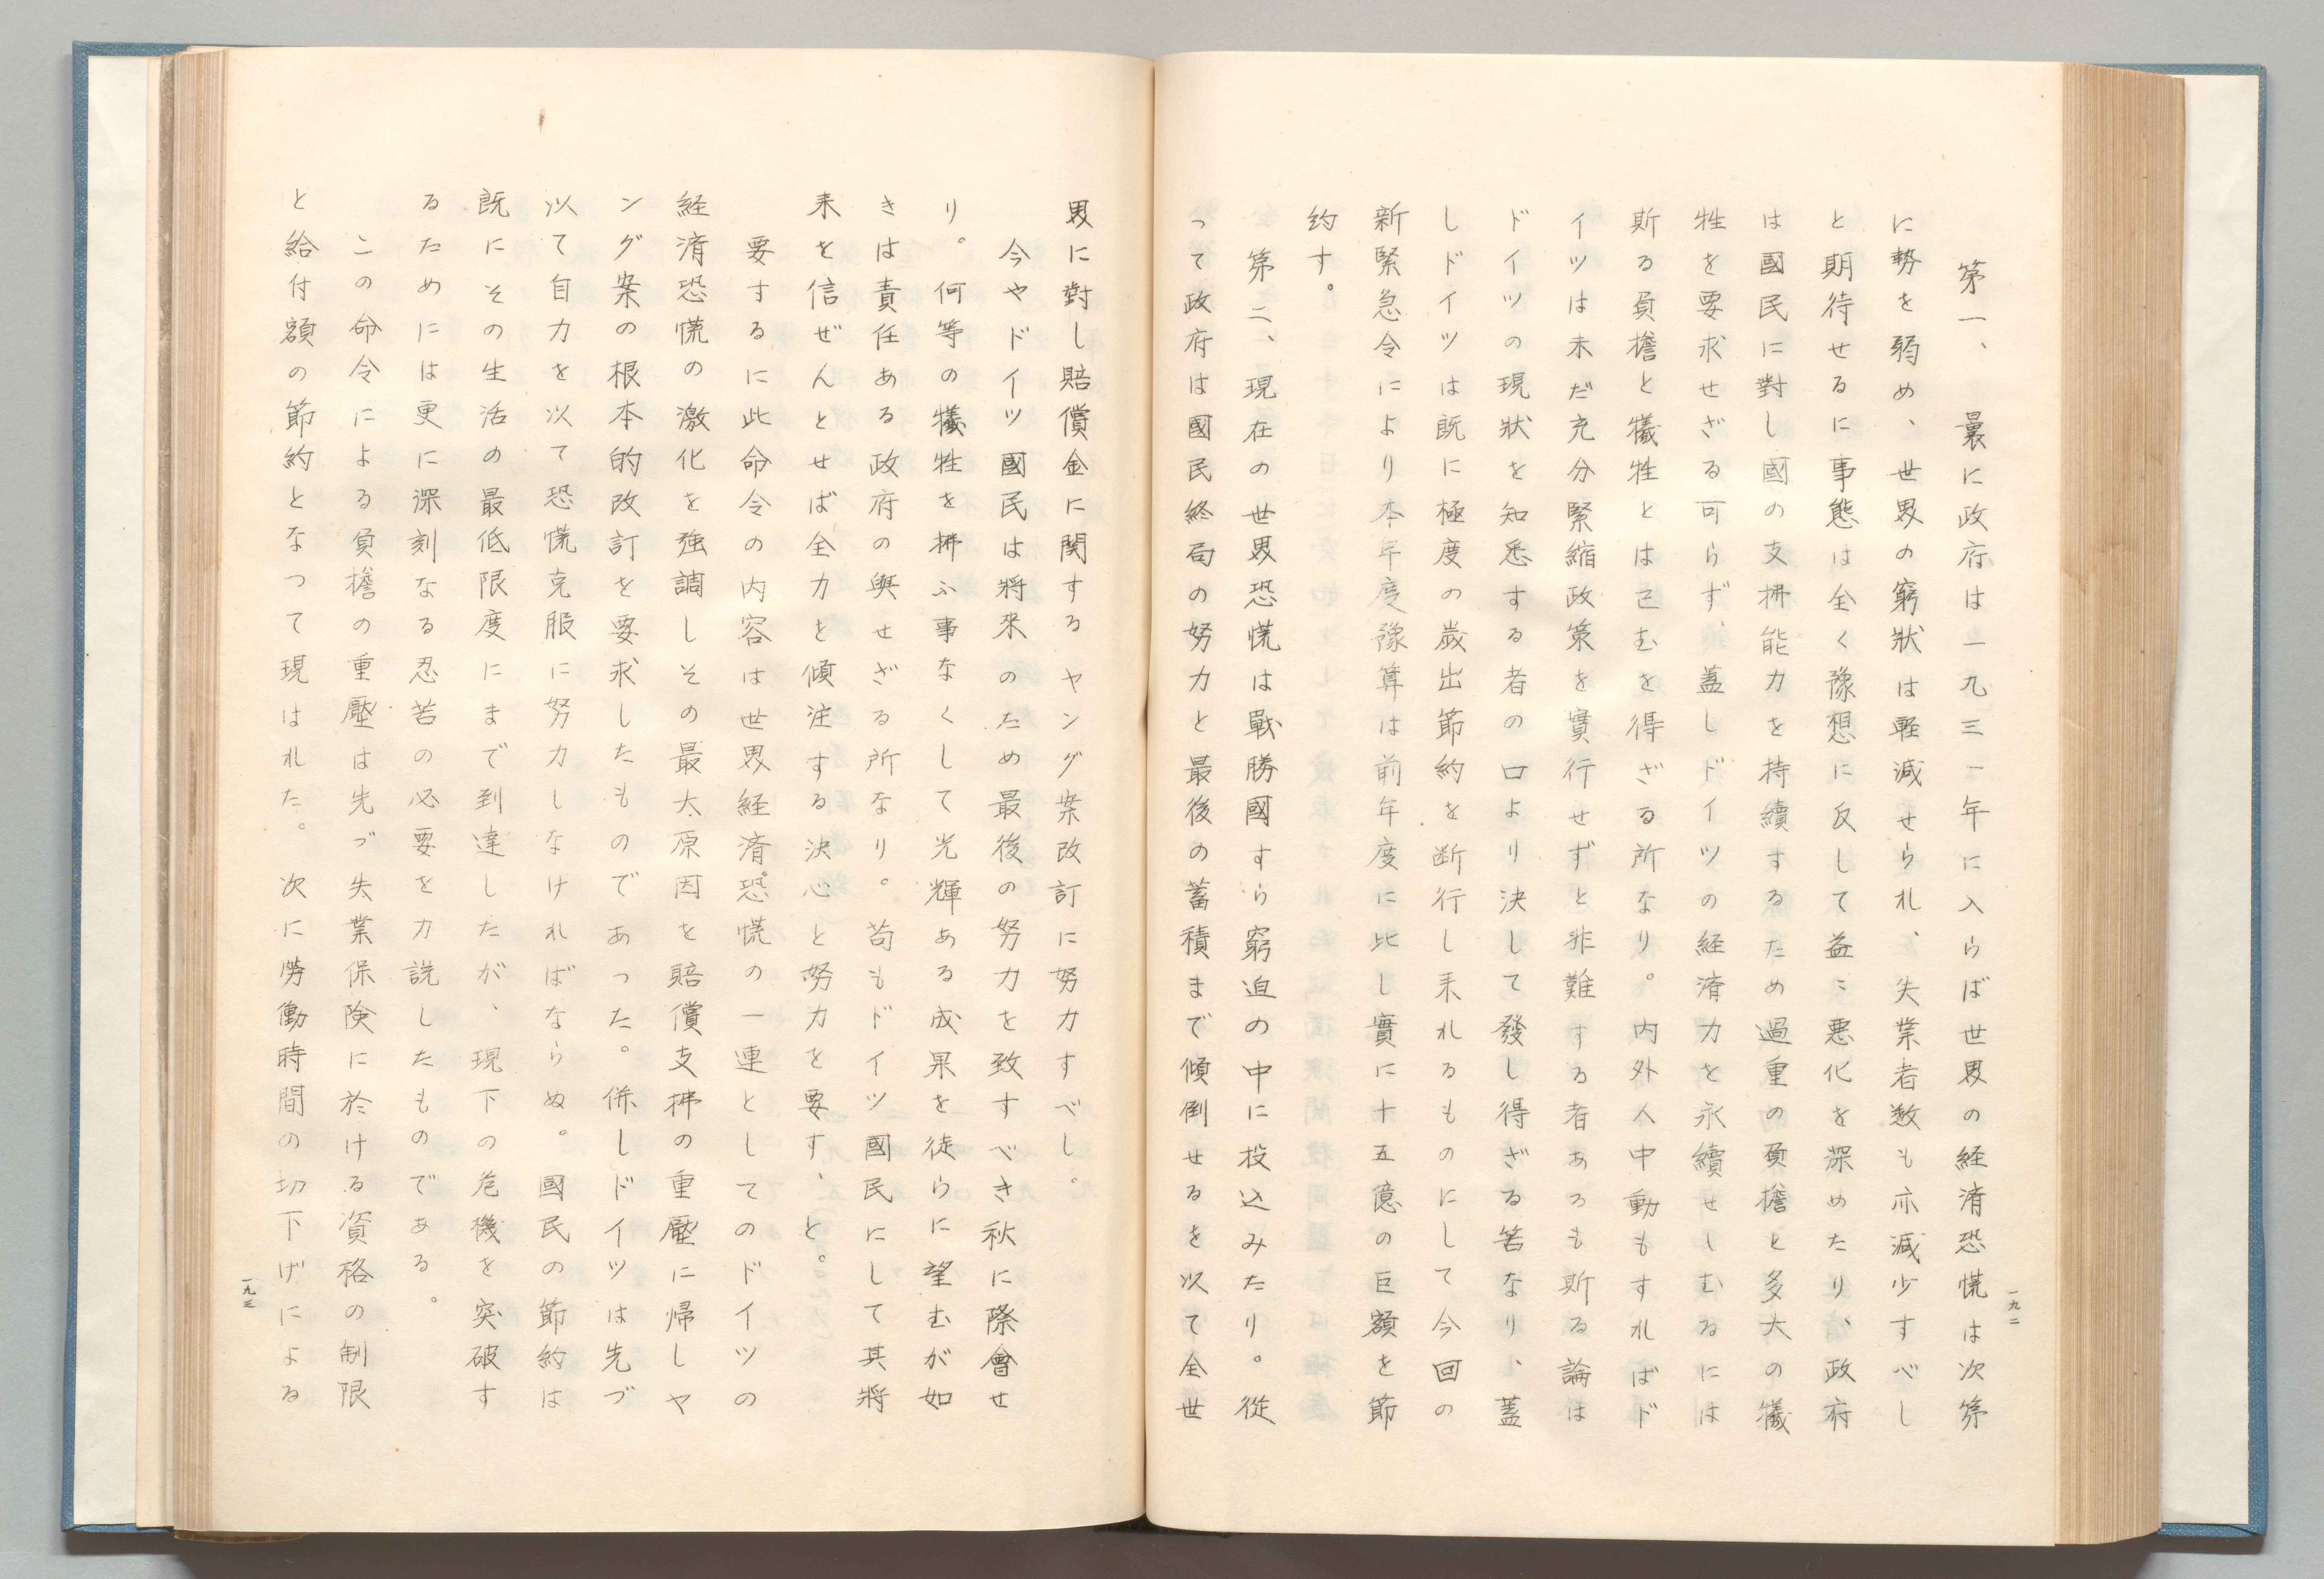 第一、曩に政府は一九三一年に入らば世界の経済恐慌は次第
に勢を弱め、世界の窮狀は軽減せられ、失業者数も亦減少すべし
と期待せるに事態は全く豫想に反して益〻悪化を深めたり、政府
は國民に對し國の支拂能力を持續するため過重の負擔と多大の犠
牲を要求せざる可らず、蓋しドイツの経済力を永續せしむるには
斯る負擔と犠牲とは已むを得ざる所なり。内外人中動もすればド
イツは未だ充分緊縮政策を實行せずと非難する者あるも斯る論は
ドイツの現狀を知悉する者の口より決して發し得ざる筈なり、蓋
しドイツは既に極度の歳出節約を断行し来れるものにして今回の
新緊急令により本年度豫算は前年度に比し實に十五億の巨額を節
約す。
第二、現在の世界恐慌は戰勝國すら窮迫の中に投込みたり。從
って政府は國民終局の努力と最後の蓄積まで傾倒せるを以て全世
一九二
界に對し賠償金に関するヤング案改訂に努力すべし。
今やドイツ國民は將來のため最後の努力を致すべき秋に際會せ
り。何等の犠牲を拂ふ事なくして光輝ある成果を徒らに望むが如
きは責任ある政府の與せざる所なり。苟もドイツ國民にして其將
来を信ぜんとせば全力を傾注する決心と努力を要す、と。
要するに此命令の内容は世界経済恐慌の一連としてのドイツの
経済恐慌の激化を強調しその最大原因を賠償支拂の重壓に帰しヤ
ング案の根本的改訂を要求したものであった。併しドイツは先づ
以て自力を以て恐慌克服に努力しなければならぬ。國民の節約は
既にその生活の最低限度にまで到達したが、現下の危機を突破す
るためには更に深刻なる忍苦の必要を力説したものである。
この命令による負擔の重壓は先づ失業保険に於ける資格の制限
と給付額の節約となつて現はれた。次に勞働時間の切下げによる
一九三